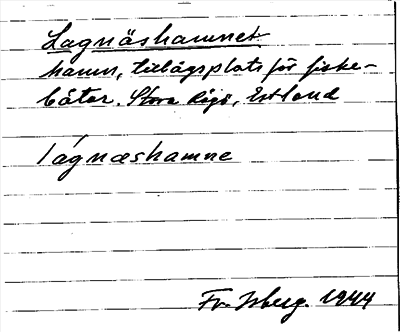 Lagnäshamnet
hamn, tillågsplats för fiske-
båtar. Stora Rågö, Estland
lágnæshamne
Fr. Isberg. 1944